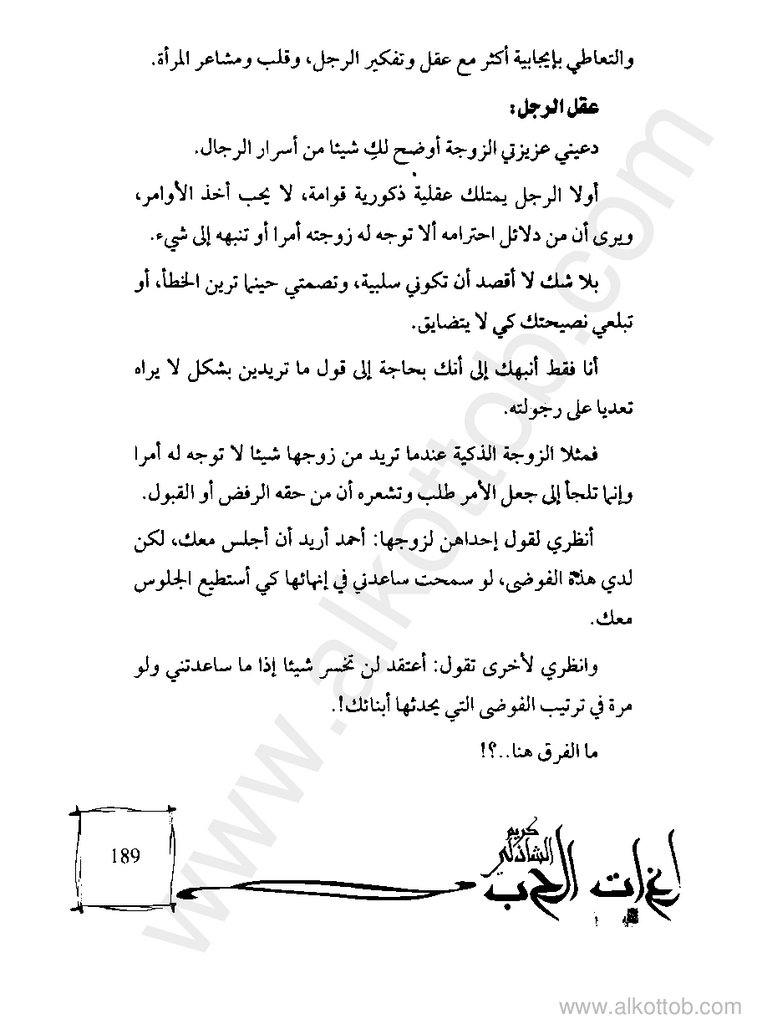 والتعاطي بإيجابية أكثر مع عقل وتفكير الرجل، وقلب ومشاعر المرأة.
عقل الرجل:
دعيني عزيزتي الزوجة أوضح لكِ شيئا من أسرار الرجال.
أولا الرجل يمتلك عقلية ذكورية قوامة، لا يحب أخذ الأوامر،
ويرى أن من دلائل احترامه ألا توجه له زوجته أمرا أو تنبهه إلى شيء.
بلا شك لا أقصد أن تكوني سلبية، وتصمتي حينما ترين الخطأ، أو
تبلعي نصيحتك كي لا يتضايق.
أنا فقط أنبهك إلى أنك بحاجة إلى قول ما تريدين بشكل لا يراه
تعديا على رجولته.
فمثلا الزوجة الذكية عندما تريد من زوجها شيئا لا توجه له أمرا
وإنما تلجأ إلى جعل الأمر طلب وتشعره أن من حقه الرفض أو القبول.
أنظري لقول إحداهن لزوجها: أحمد أريد أن أجلس معك، لكن
لدي هذه الفوضى، لو سمحت ساعدني في إنهائها كي أستطيع الجلوس
معك.
وانظري لأخرى تقول: أعتقد لن تخسر شيئا إذا ما ساعدتني ولو
مرة في ترتيب الفوضى التي يحدثها أبنائك!.
ما الفرق هنا..؟!
189
كريم
الشاذلي
لغات الحب
www.alkottob.com
www.alkottob.com